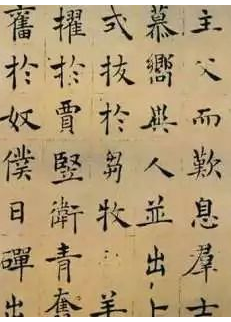 主父而歎息羣士
慕嚮異人並出卜
式拔於芻牧羊
擢於賈豎衛青奮
奮於奴僕日磾出